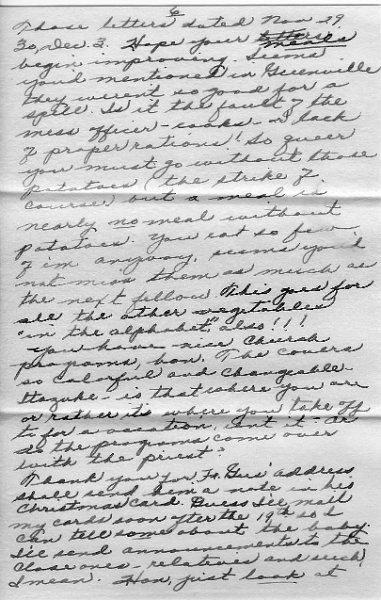 6
Those letters dated Nov 29,
30, Dec. 3. Hope your letters meals
begin improving. Seems
you'd mentioned in Greenville
they weren't so good for a
spell. Is it the fault of the
mess officer - cooks - or lack
of proper rations! So queer
you must go without those
potatoes (the strike of
course) but a meal is
nearly no meal without
potatoes. You eat so few
of 'em anyway, seems you'd
not miss them as much as
the next fellow. This goes for
all the other vegetables
"in the alphabet," also!!!
You have nice church
programs, hon. The covers
so colorful and changeable.
Itazuke - is that where you are
or rather it's where you take off
to for a vacation, isn't it - or
do the programs come over
with the priest?
Thank you for Fr. Gus' address
shall send him a note in his
Christmas card. Guess I'll mail
my cards soon after the 19th so I
can tell some about the baby.
I'll send announcements to the
close ones - relatives and such,
I mean. Hon, just look at